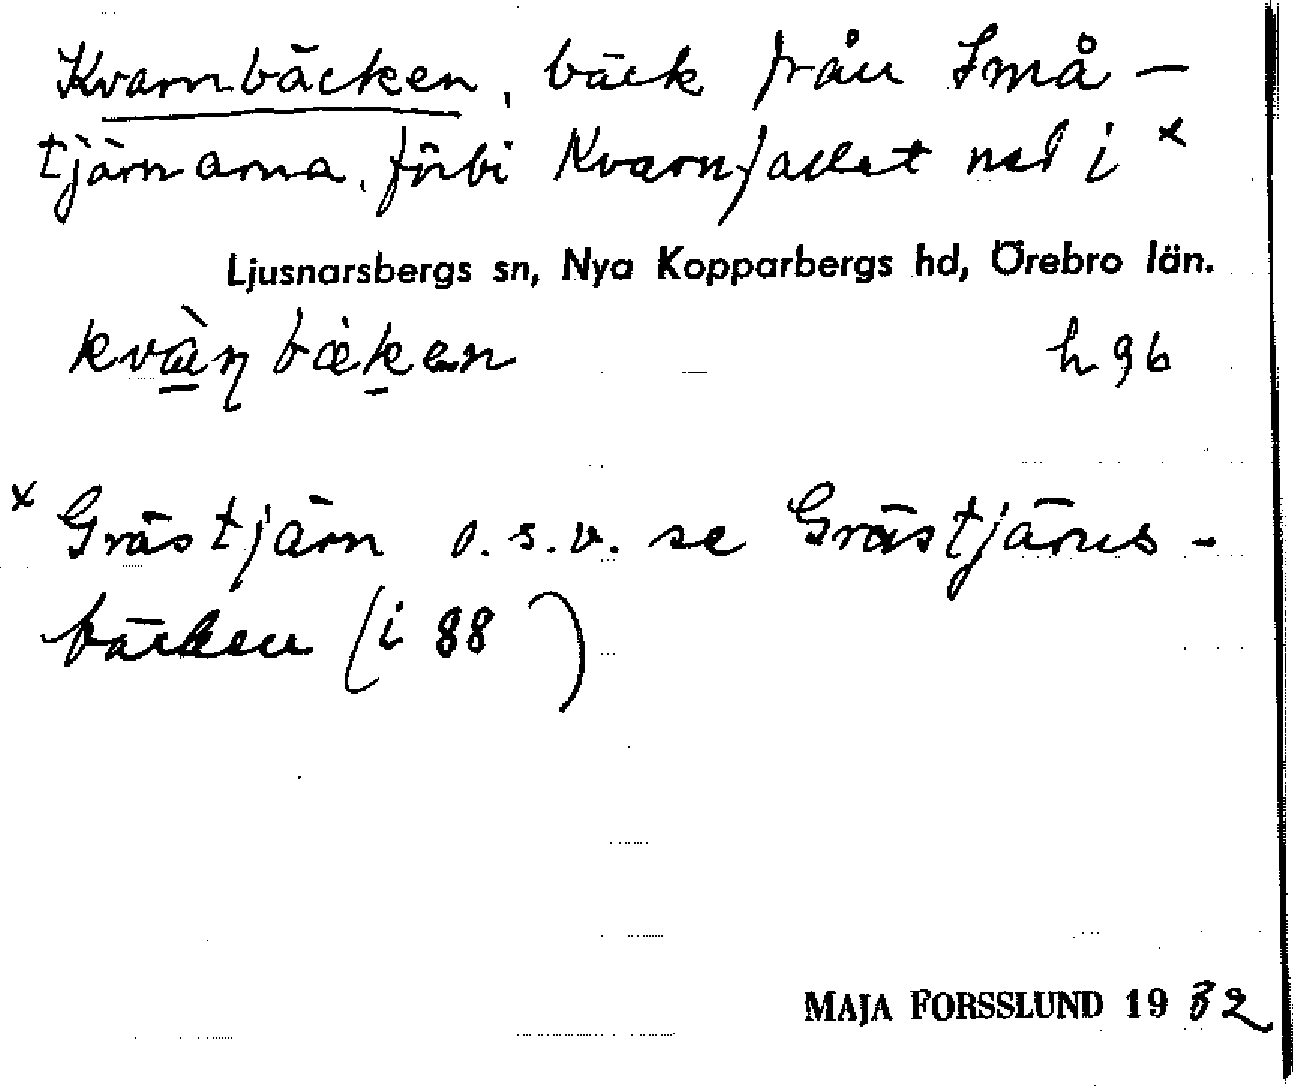 Kvarnbäcken, bäck från Små-
tjärnarna, förbi Kvarnfallet ned i x
Ljusnarsbergs sn, Nya Kopparbergs hd, Örebro län.
kvàṇbæ̀ken h 96
x Grästjärn o.s.v. se Grästjärns-
bäcken (i 88 )
MAJA FORSSLUND 1932